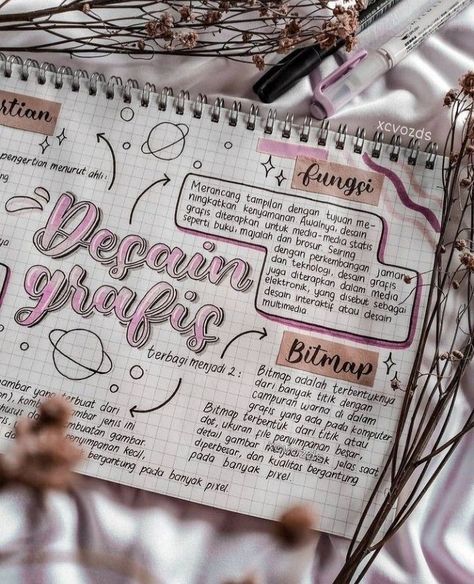 xcvozds
rtian
pengertian menurut ahli :
Desain
grafis
terbagi menjadi 2 :
fungsi
Merancang tampilan dengan tujuan me-
ningkatkan kenyamanan Awalnya, desain
grafis diterapkan untuk media-media statis
seperti buku, majalah dan brosur. Seiring
dengan perkembangan jaman
dan teknologi, desain grafis
juga diterapkan dalam media
elektronik, yang disebut sebagai
desain interaktif atau desain
multimedia
Bitmap
Bitmap adalah terbentuknya
dari banyak titik dengan
campuran warna di dalam
grafis yang ada pada komputer
Bitmap terbentuk dari titik atau
dot, ukuran file penyimpanan besar,
detail gambar menjadi tidak jelas saat
diperbesar, dan kualitas bergantung
pada banyak pixel.
gambar yang terbuat dari
jenis ini
membuat gambar.
penyimpanan kecil,
bergantung pada banyak pixel.